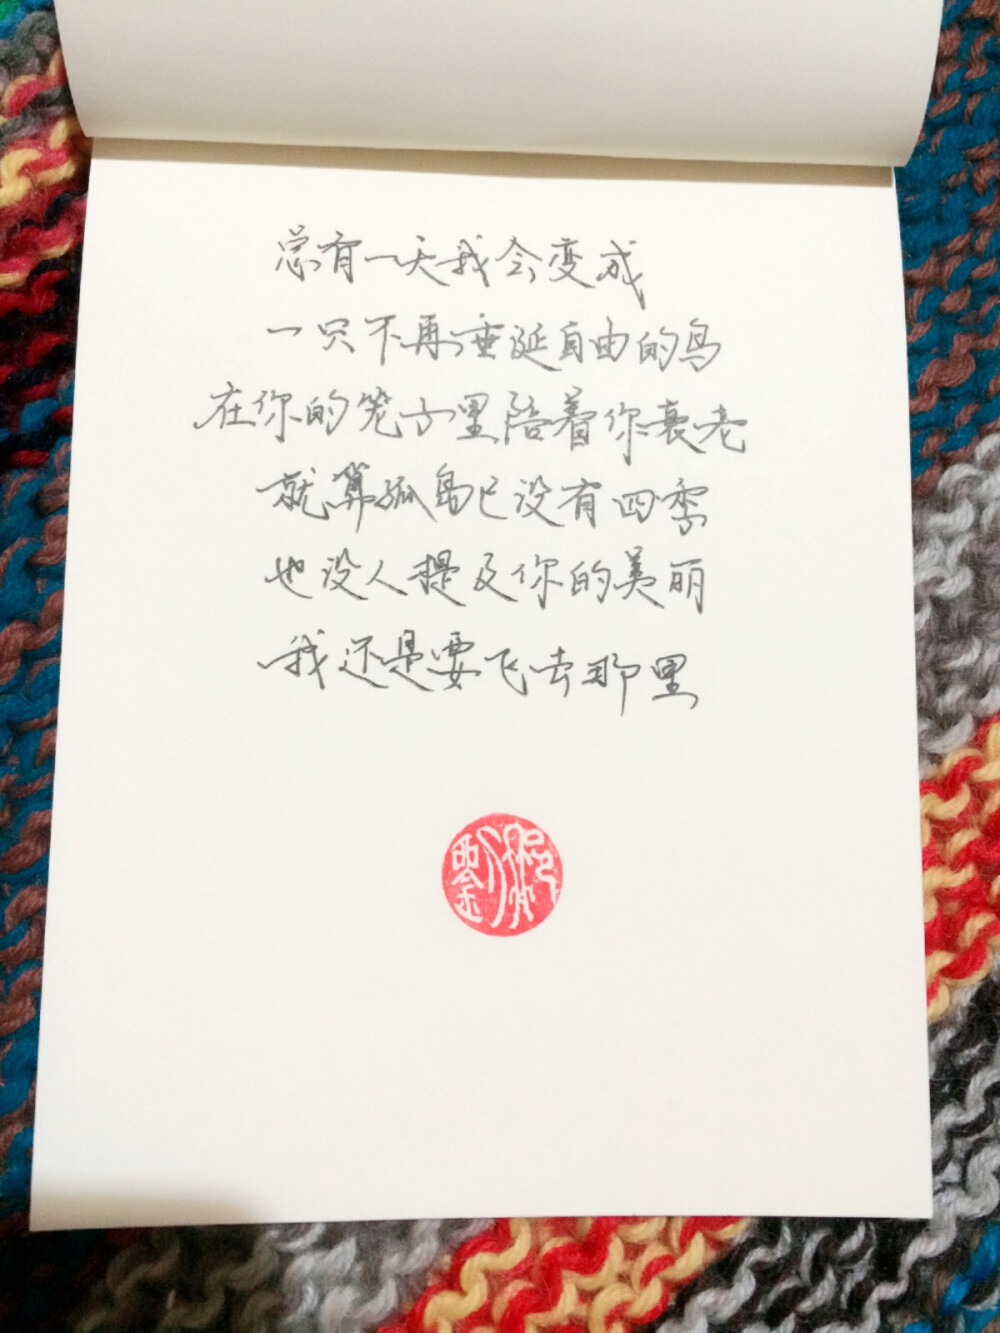 总有一天我会变成
一只不再垂涎自由的鸟
在你的笼子里陪着你衰老
就算孤岛已没有四季
也没人提及你的美丽
我还是要飞去那里